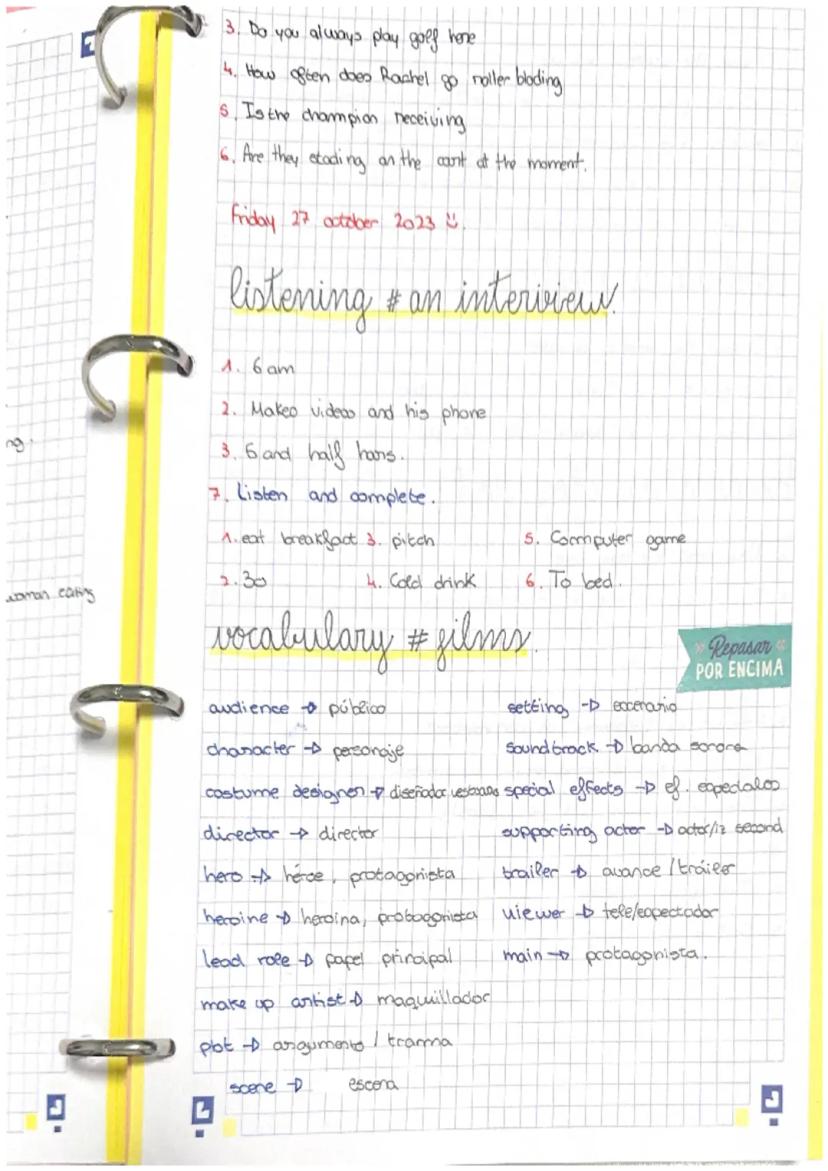 3. Do you always play golf here
4. How often does Rachel go roller blading
5. Is the champion receiving
6. Are they etading on the cant at the moment.
Friday 27 october 2023
listening # an interview.
1. 6 am
2. Makes videos and his phone
3. 6 and half hans.
ng.
7. Listen and complete.
1. eat breakfact 3. pitch 5. Commputer game
2. 30 4. Cold drink 6. To bed.
woman eating
vocabulary # films.
» Repasar «
POR ENCIMA
audience → público setting → escenario
character → personaje soundtrack → banda sonora
costume designer → diseñador vestuario special effects → ef. especiales
director → director supporting actor → actor/iz second
hero → héroe, protagonista trailer → avance / tráiler
heroine → heroína, protagonista viewer → tele/espectador
lead role → papel principal main → protagonista.
make up artist → maquillador
plot → argumento / tramma
scene → escena